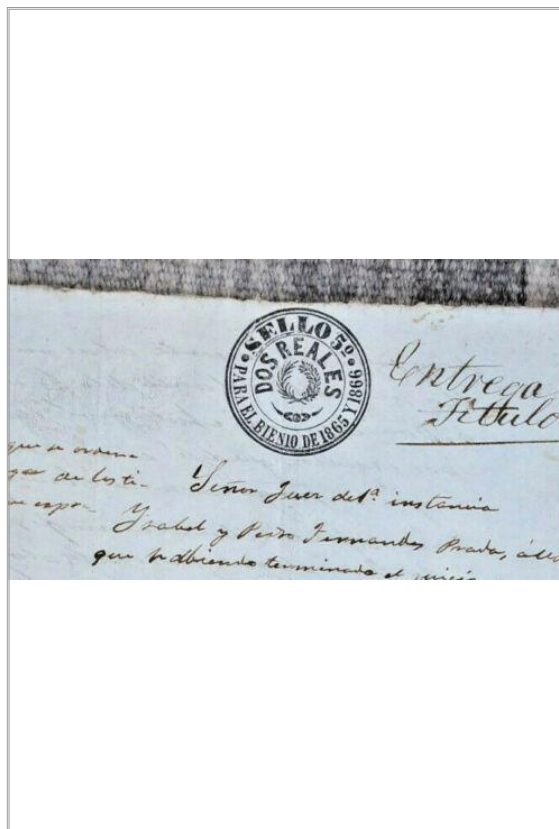 SELLO 5º
DOS REALES
PARA EL BIENIO DE 1865 Y 1866
Entrega
Tittulo
que se ordene
de los ti-
Señor Juez de 1ª instancia
Ysabel y Pedro Fernandes Prada, á
que habiendo terminado el juicio